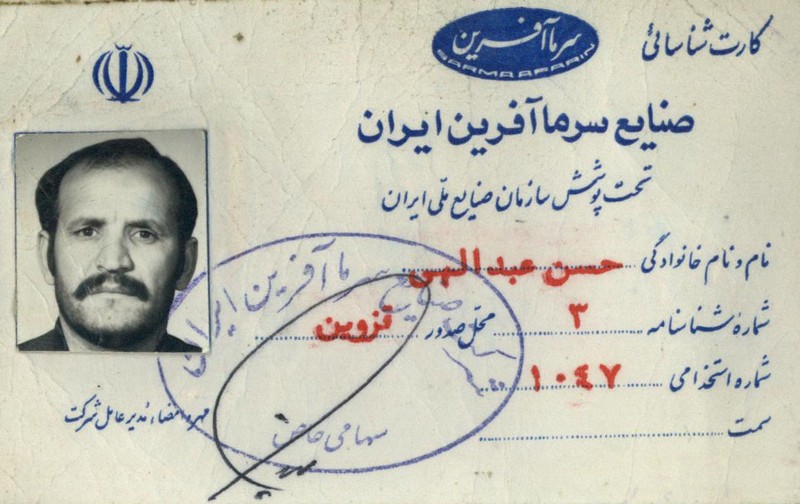 کارت شناسائی
سرماآفرین
SARMAAFARIN
صنایع سرماآفرین ایران
تحت پوشش سازمان صنایع ملّی ایران
نام و نام خانوادگی حسن عبدالهی
شمارهٔ شناسنامه ۳ محلّ صدور قزوین
شماره استخدامی ۱۰٤۷
سمت
مهر و امضاء مدیر عامل شرکت
شرکت صنایع سرماآفرین ایران
سهامی خاص